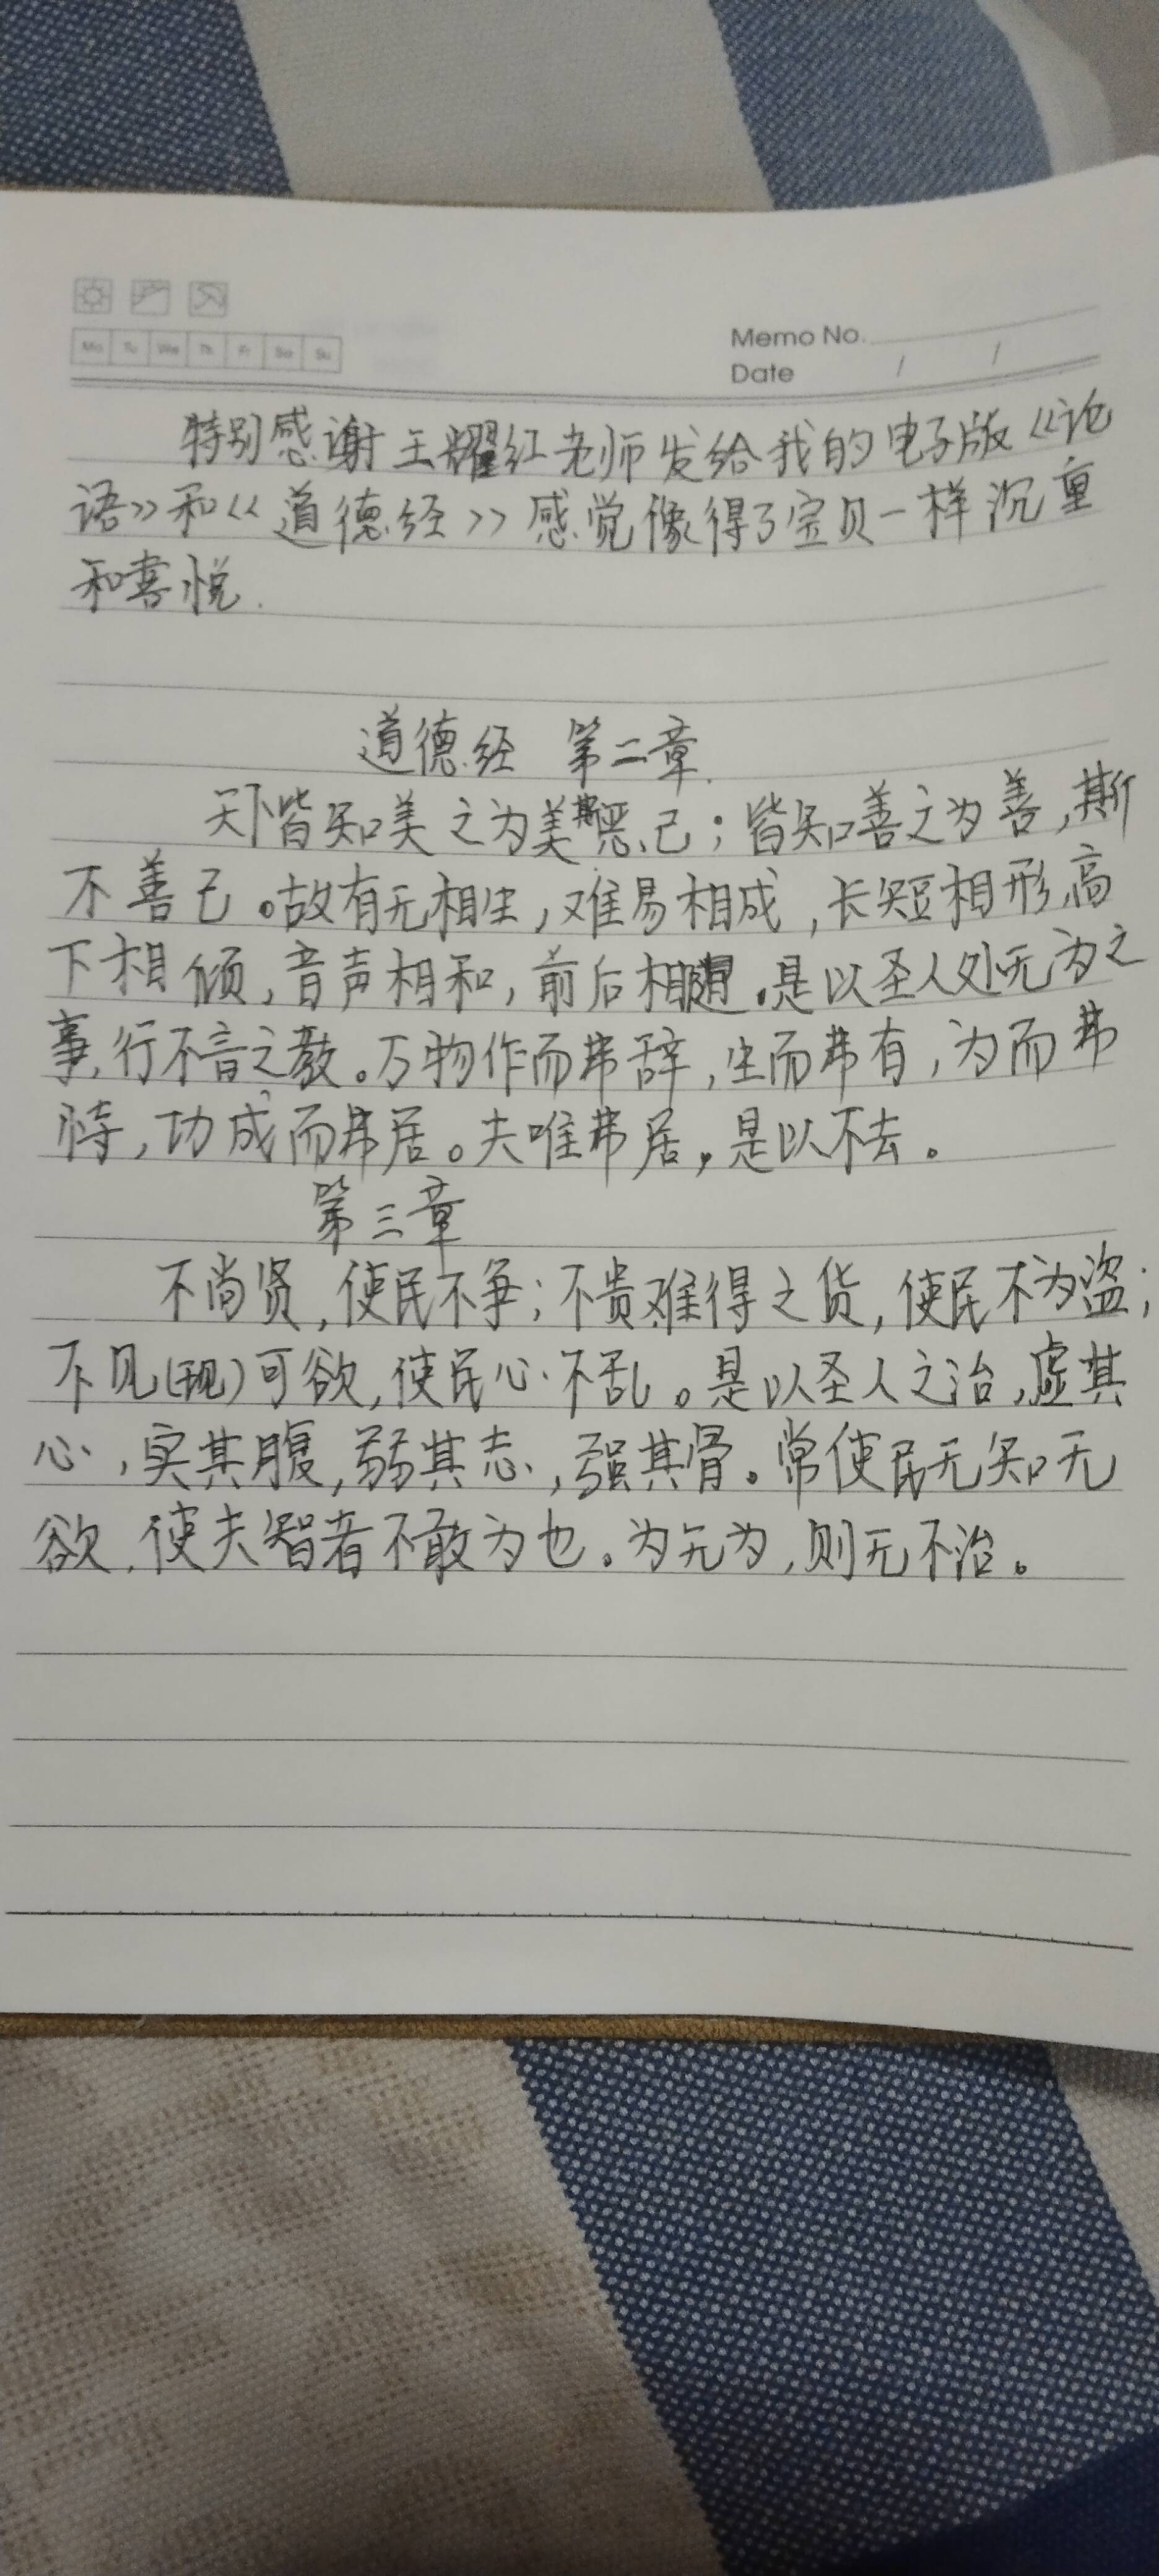 Mo Tu We Th Fr Sa Su
Memo No.
Date / /
特别感谢王耀红老师发给我的电子版《论
语》和《道德经》感觉像得了宝贝一样沉重
和喜悦.
道德经 第二章.
天下皆知美之为美斯恶己；皆知善之为善,斯
不善己。故有无相生,难易相成,长短相形,高
下相倾,音声相和,前后相随。是以圣人处无为之
事,行不言之教。万物作而弗辞,生而弗有,为而弗
恃,功成而弗居。夫唯弗居,是以不去。
第三章
不尚贤,使民不争;不贵难得之货,使民不为盗;
不见(现)可欲,使民心不乱。是以圣人之治,虚其
心,实其腹,弱其志,强其骨。常使民无知无
欲,使夫智者不敢为也。为无为,则无不治。